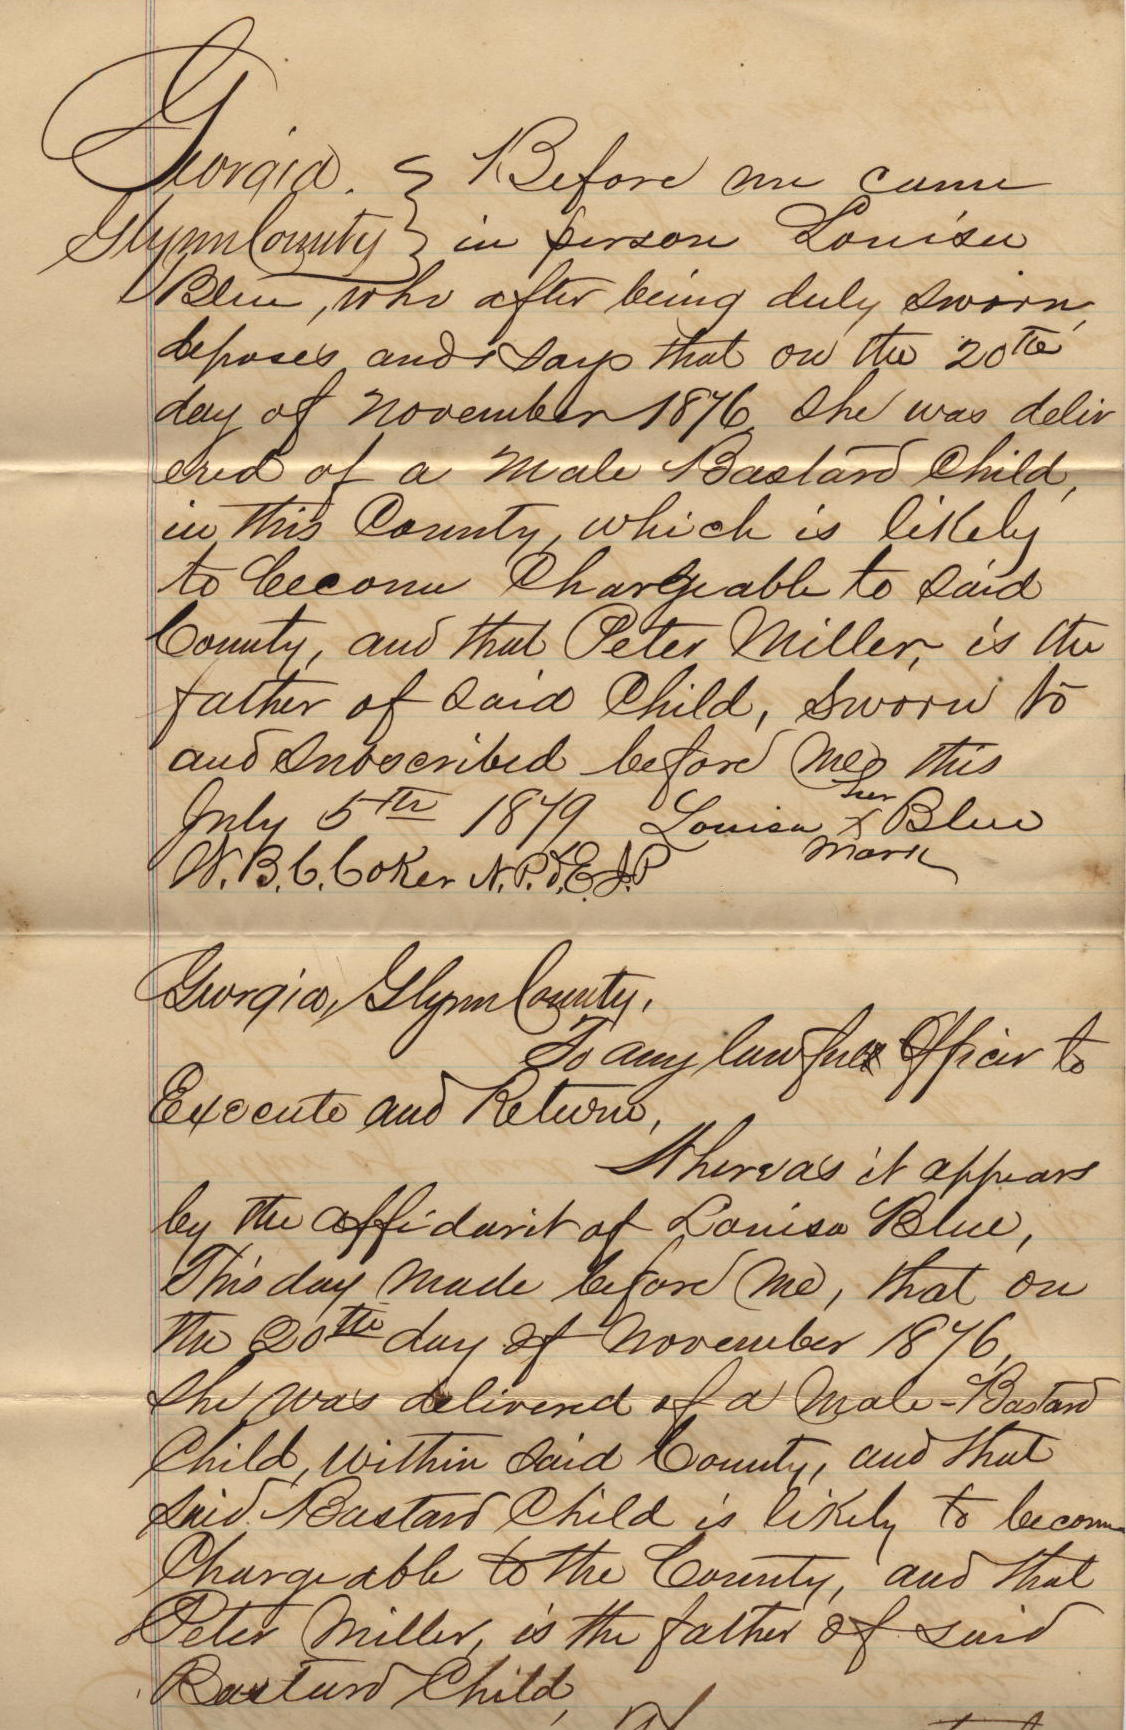 Georgia. } Before me came
Glynn County } in person Louisa
Blue, who after being duly sworn,
deposes and says that on the 20th
day of November 1876 She was deliv
ered of a Male Bastard Child,
in this County, which is likely
to become Chargeable to Said
County, and that Peter Miller, is the
father of Said Child, Sworn to
and Subscribed before me this
July 5th 1879 Louisa her X mark Blue
W. B. C. Coker N.P. & E. J.P
Georgia, Glynn County,
To any lawful Officer to
Execute and Return,
Whereas it appears
by the affidavit of Louisa Blue,
This day made before me, that on
the 20th day of November 1876,
She was delivered of a Male-Bastard
Child, within Said County, and that
Said Bastard Child is likely to become
Chargeable to the County, and that
Peter Miller, is the father of Said
Bastard Child,